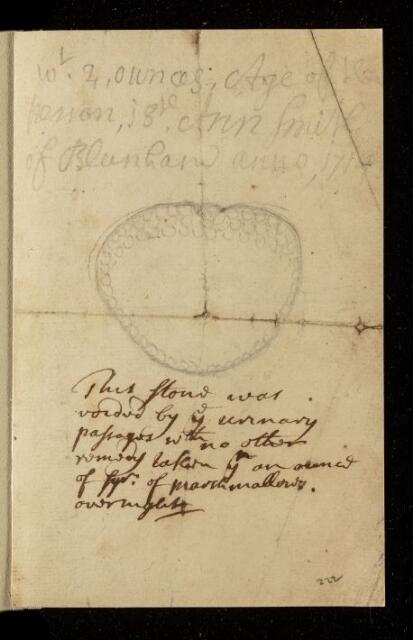 wt. 2, ounces; Age of the
person, 18. Ann Smith
of Blunham anno, 171
This stone was
voided by ye urinary
passages with no other
remedy taken yn an ounce
of syr. of marshmallows.
overnight
222